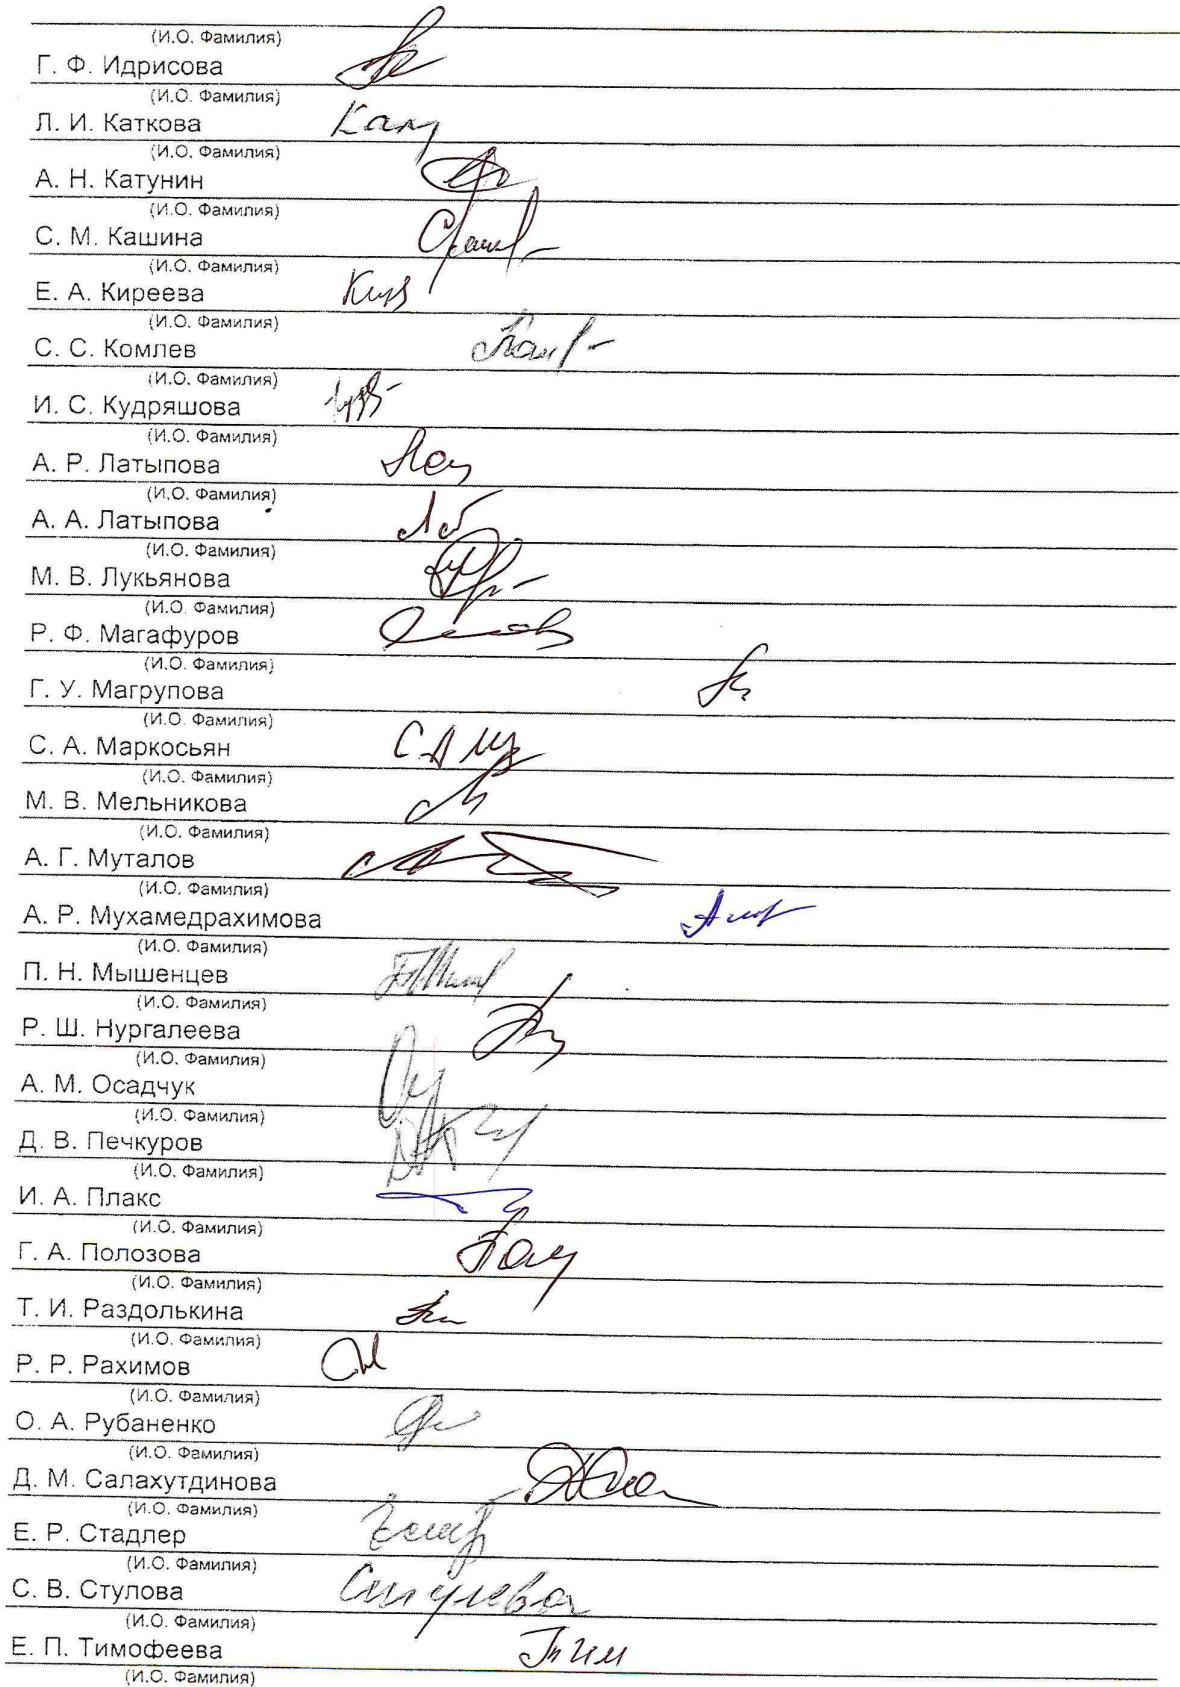 (И.О. Фамилия)
Г. Ф. Идрисова
(И.О. Фамилия)
Л. И. Каткова
(И.О. Фамилия)
А. Н. Катунин
(И.О. Фамилия)
С. М. Кашина
(И.О. Фамилия)
Е. А. Киреева
(И.О. Фамилия)
С. С. Комлев
(И.О. Фамилия)
И. С. Кудряшова
(И.О. Фамилия)
А. Р. Латыпова
(И.О. Фамилия)
А. А. Латыпова
(И.О. Фамилия)
М. В. Лукьянова
(И.О. Фамилия)
Р. Ф. Магафуров
(И.О. Фамилия)
Г. У. Магрупова
(И.О. Фамилия)
С. А. Маркосьян
(И.О. Фамилия)
М. В. Мельникова
(И.О. Фамилия)
А. Г. Муталов
(И.О. Фамилия)
А. Р. Мухамедрахимова
(И.О. Фамилия)
П. Н. Мышенцев
(И.О. Фамилия)
Р. Ш. Нургалеева
(И.О. Фамилия)
А. М. Осадчук
(И.О. Фамилия)
Д. В. Печкуров
(И.О. Фамилия)
И. А. Плакс
(И.О. Фамилия)
Г. А. Полозова
(И.О. Фамилия)
Т. И. Раздолькина
(И.О. Фамилия)
Р. Р. Рахимов
(И.О. Фамилия)
О. А. Рубаненко
(И.О. Фамилия)
Д. М. Салахутдинова
(И.О. Фамилия)
Е. Р. Стадлер
(И.О. Фамилия)
С. В. Стулова
(И.О. Фамилия)
Е. П. Тимофеева
(И.О. Фамилия)